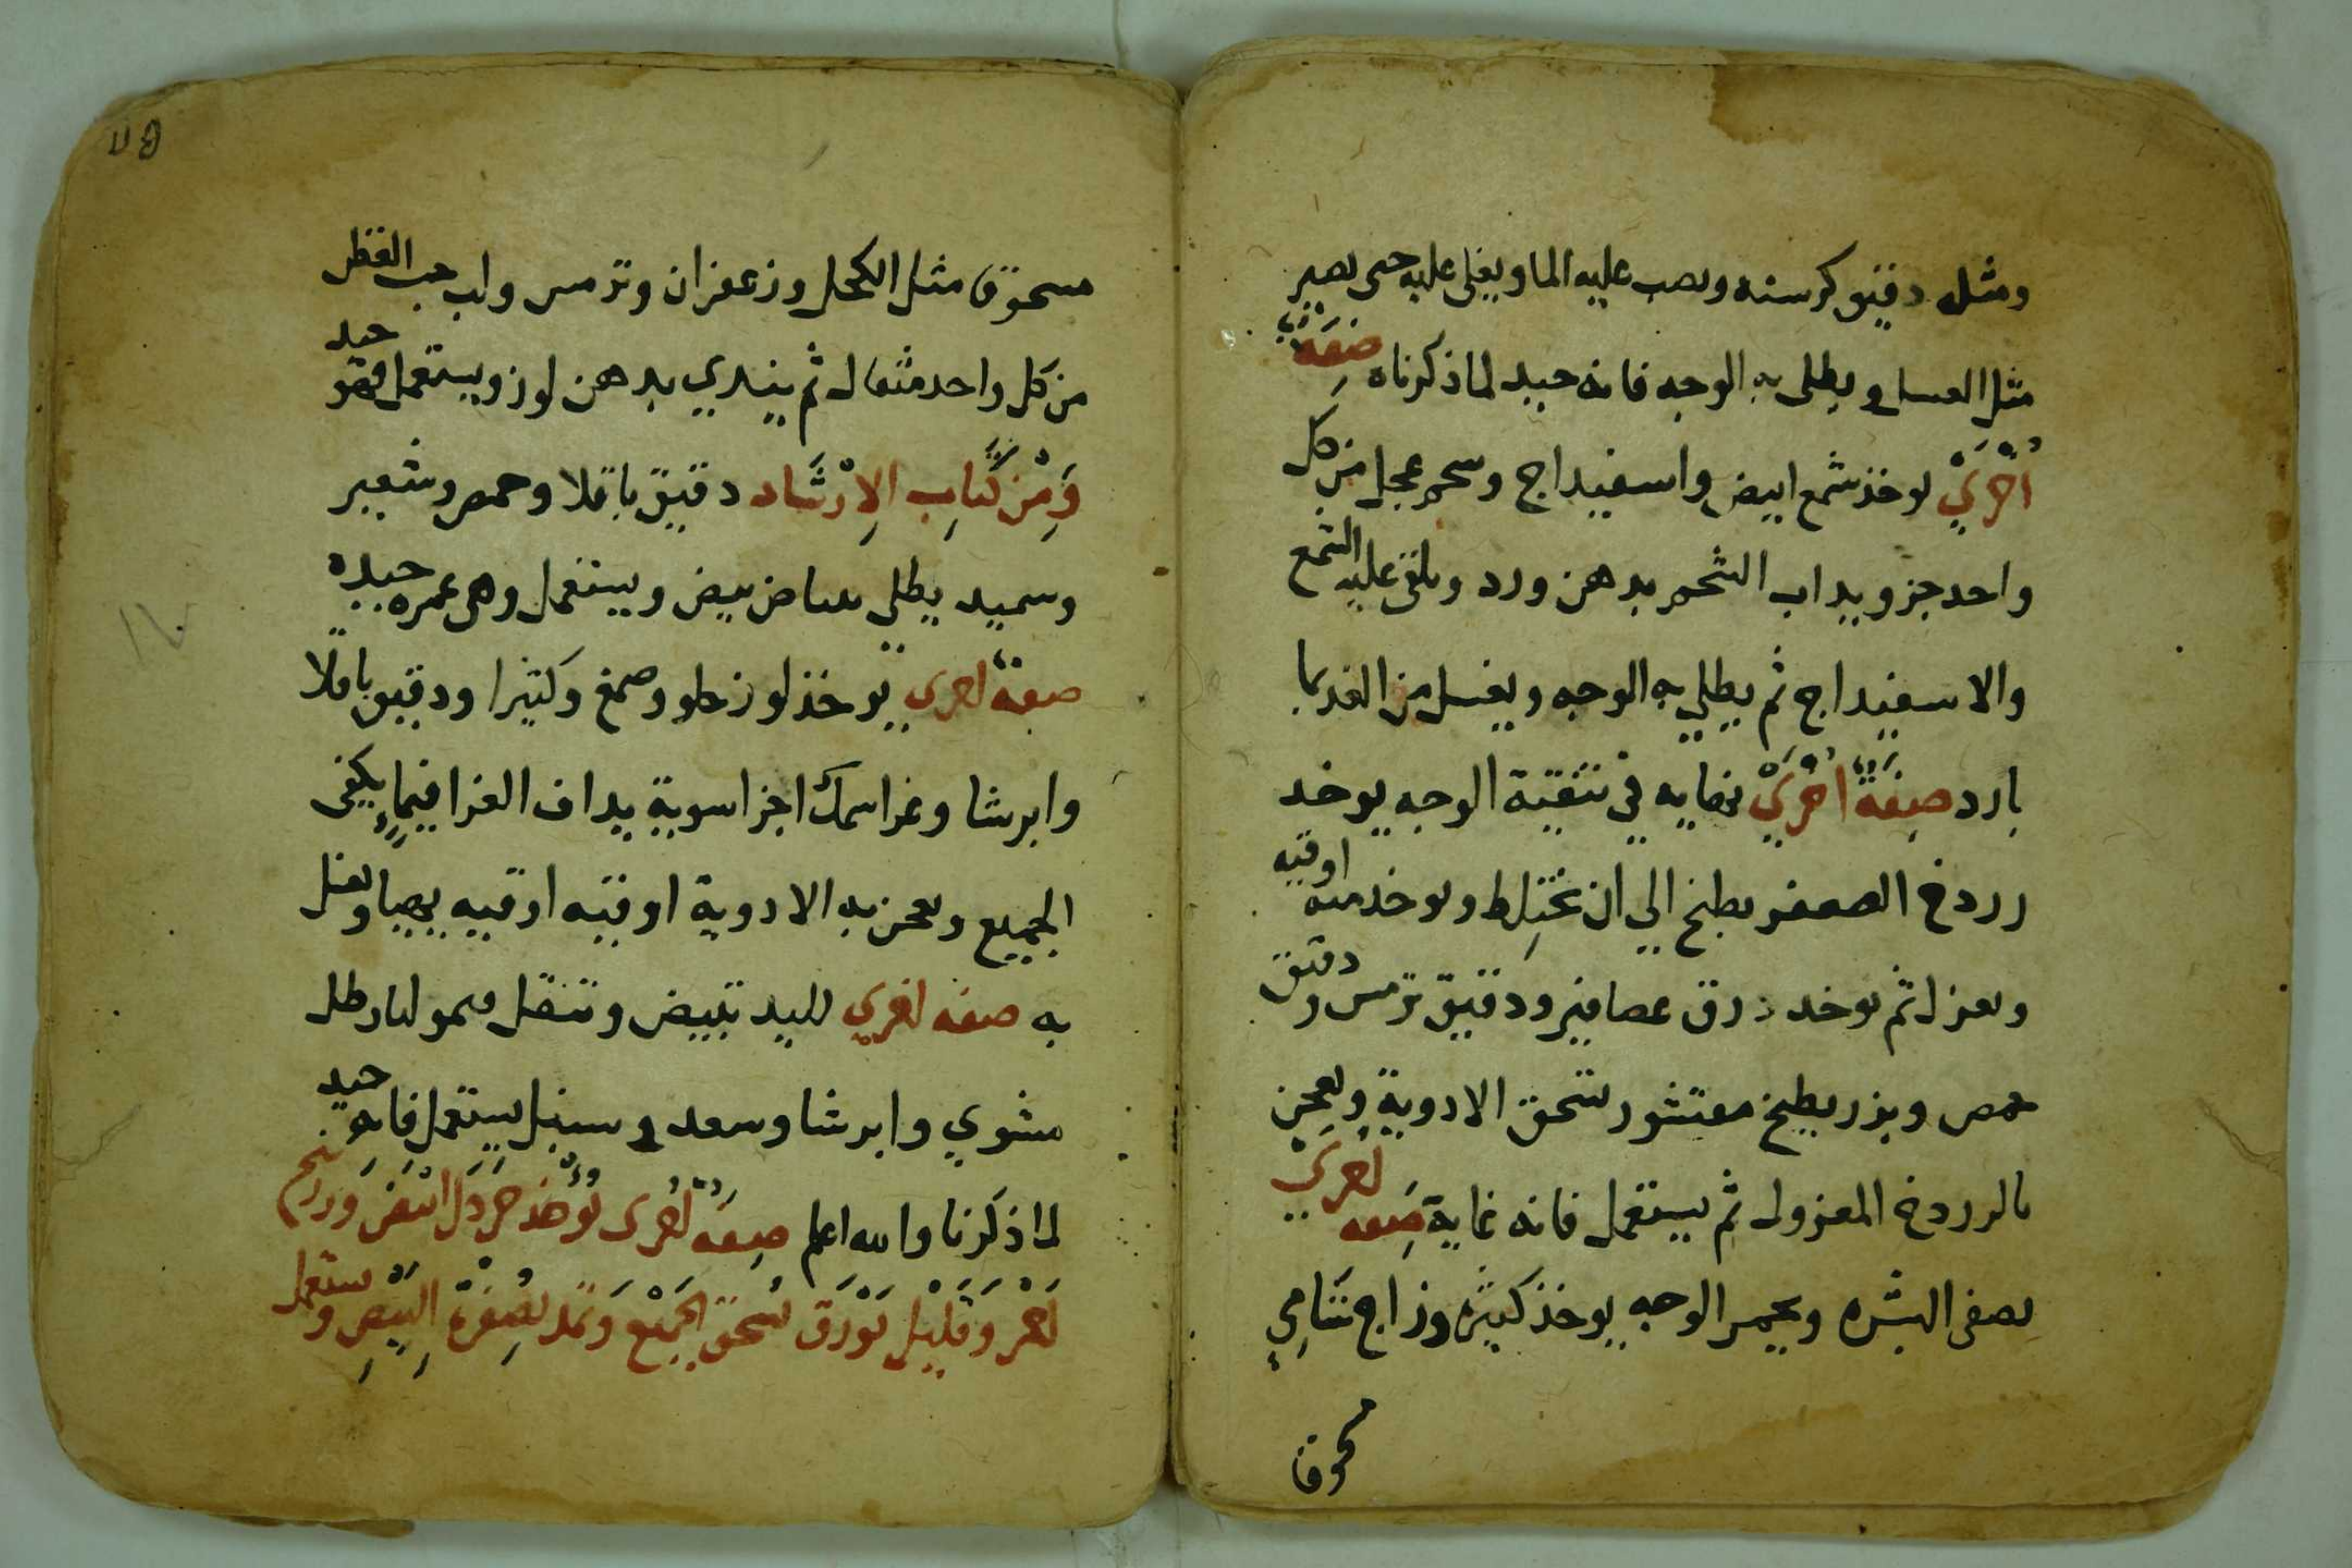 ومثل دقيق كرسنه ويصب عليه الما ويغلى عليه حتى يصير
مثل العسل ويطلى به الوجه فانه جيد لما ذكرناه صفة
اخري يوخذ شمع ابيض واسفيداج وشحم عجل من كل
واحد جزو يداب الشحم بدهن ورد ويلقى عليه الشمع
والاسفيداج ثم يطلي به الوجه ويغسل من الغد بما
بارد صفة اخري نهايه في تنقية الوجه يوخد
رردخ العصفر يطبخ الي ان يختلط ويوخد منه اوقيه
ويعزل ثم يوخد زرق عصافير ودقيق ترمس ودقيق
حمص وبزر بطيخ مقشور تسحق الادوية ويعجن
بالرردخ المعزول ثم يستعمل فانه غاية صفه اخري
يصفى البشره ويحمر الوجه يوخذ كثيره وزاج شامي
مسحوقا
مسحوقا مثل الكحل وزعفران وترمس ولب حب القطن
من كل واحد مثقال ثم يندي بدهن لوز ويستعمل فهو جيد
وَمِنْ كِتَابِ الاِرْشَاد دقيق باقلا وحمص وشعير
وسميد يطلي ببياض بيض ويستعمل وهي غمره جيده
صفة اخرى يوخذ لوز حلو وصمغ وكثيرا ودقيق باقلا
وايرسا وغرا سمك اجزا سوية يداف الغرا فيما يكفى
الجميع ويعجن به الادوية اوقيه اوقيه يهيا ويغسل
به صفه اخري لليد تبيض وتنقل
مشوي وايرشا وسعد وسنبل يستعمل فانه جيد
لما ذكرنا والله اعلم صفه اخرى يوخذ خردل ابيض وزرنيخ
احمر وقليل بورق تسحق الجميع بصفرة البيض ويستعمل